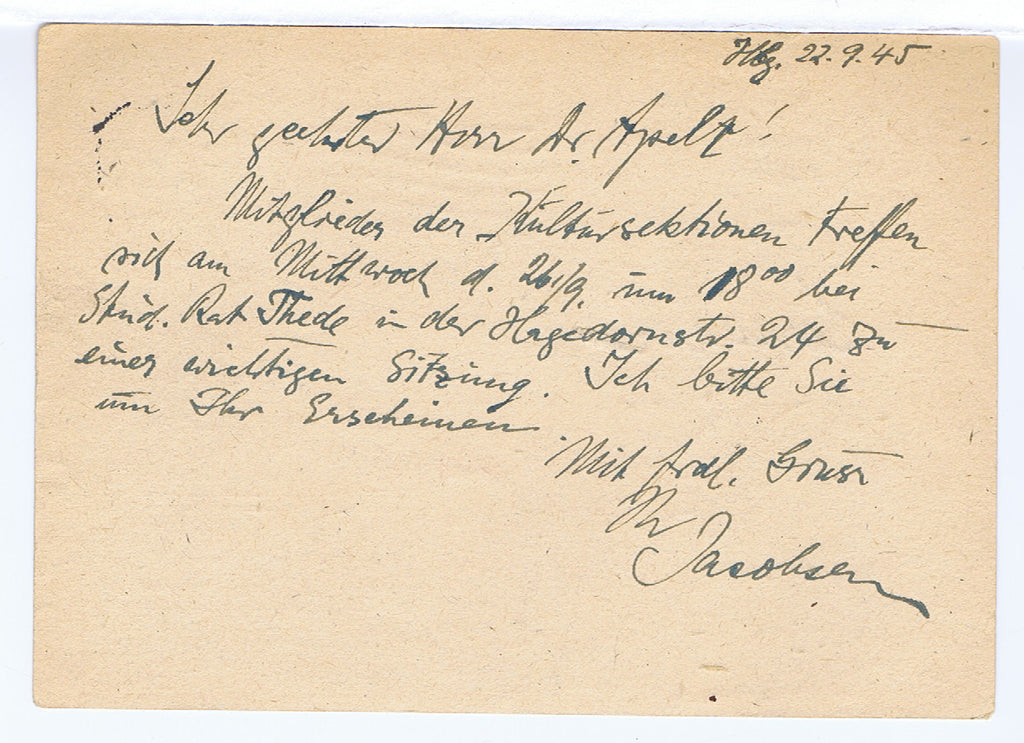 Hbg. 22.9.45
Sehr geehrter Herr Dr. Apelt!
Mitglieder der Kultursektionen treffen
sich am Mittwoch d. 26/9. um 18⁰⁰ bei
Stud. Rat Thede in der Hagedornstr. 24 zu
einer wichtigen Sitzung. Ich bitte Sie
um Ihr Erscheinen
Mit frdl. Gruss
Ihr
Jacobsen